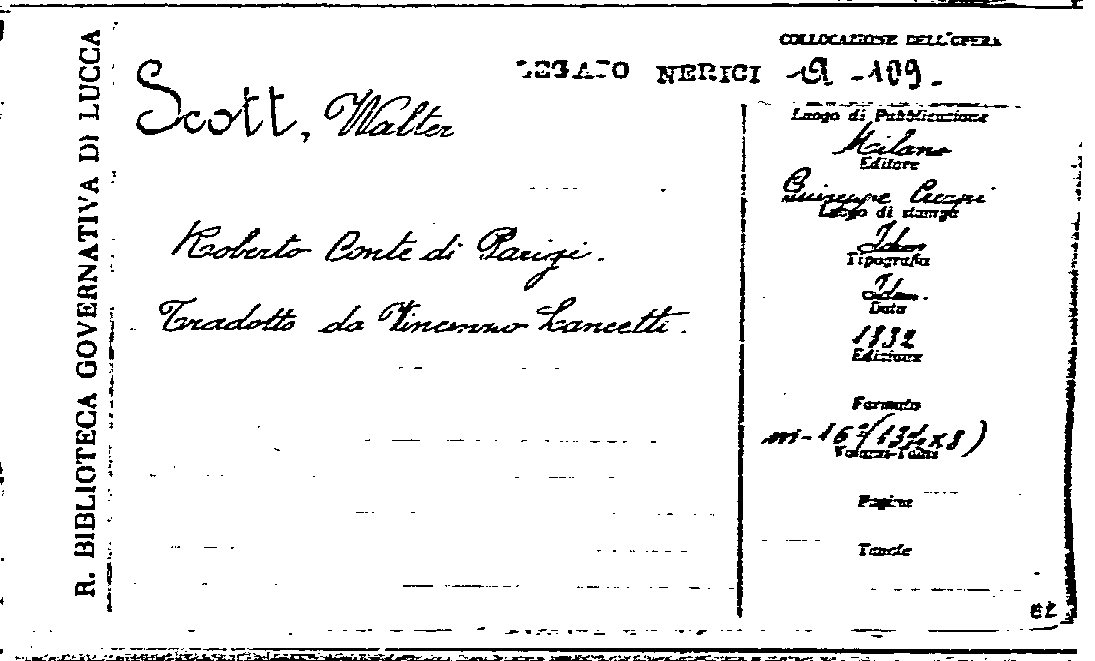 R. BIBLIOTECA GOVERNATIVA DI LUCCA
COLLOCAZIONE DELL'OPERA
LEGATO NERICI 19 -109-
Scott, Walter
Roberto Conte di Parigi.
Tradotto da Vincenzo Lancetti.
Luogo di Pubblicazione
Milano
Editore
Giuseppe Crespi
Luogo di stampa
Idem
Tipografia
Idem.
Data
1832
Edizione
Formato
in-16°(13½x8)
Volumi-Tomi
Pagine
Tavole